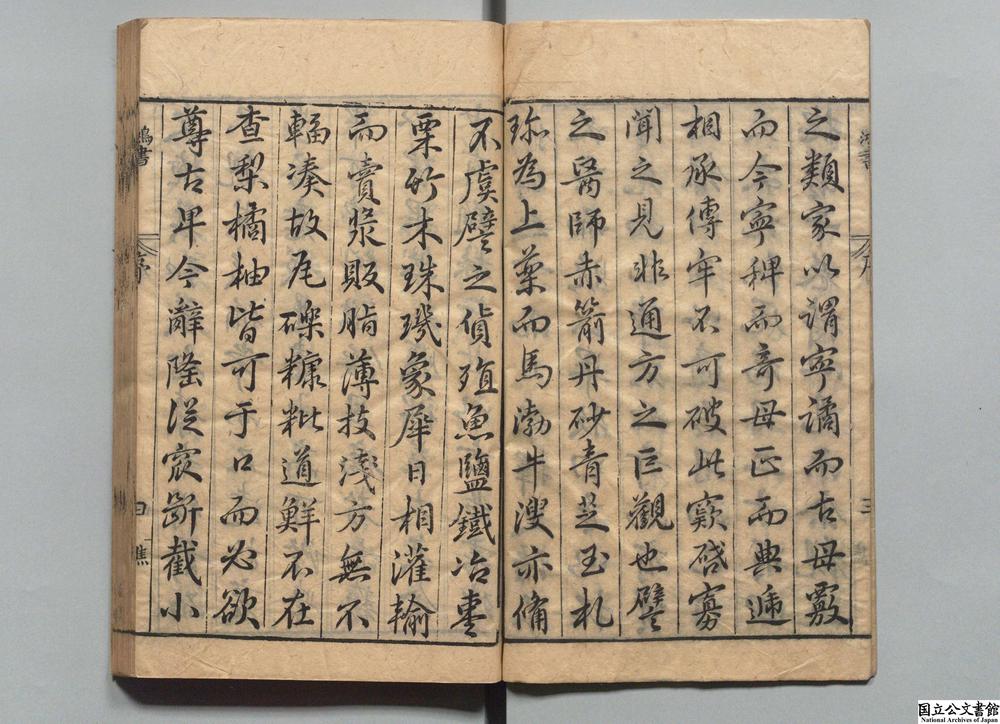 之類家以謂寧譎而古毋覈
而今寧稗而竒毋正而典遞
相承傳牢不可破此窾啓寡
聞之見非通方之巨觀也譬
之醫師赤箭丹砂青芝玉札
珎為上藥而馬渤牛溲亦備
不虞譬之貨殖魚鹽鐵冶棗
栗竹木珠璣象犀日相灌輸
而賣漿販脂薄技淺方無不
輻湊故瓦礫糠粃道鮮不在
查梨橘柚皆可于口而必欲
尊古卑今辭隆從窳斷截小
鴻書
序
三
鴻書
序
四
国立公文書館
National Archives of Japan